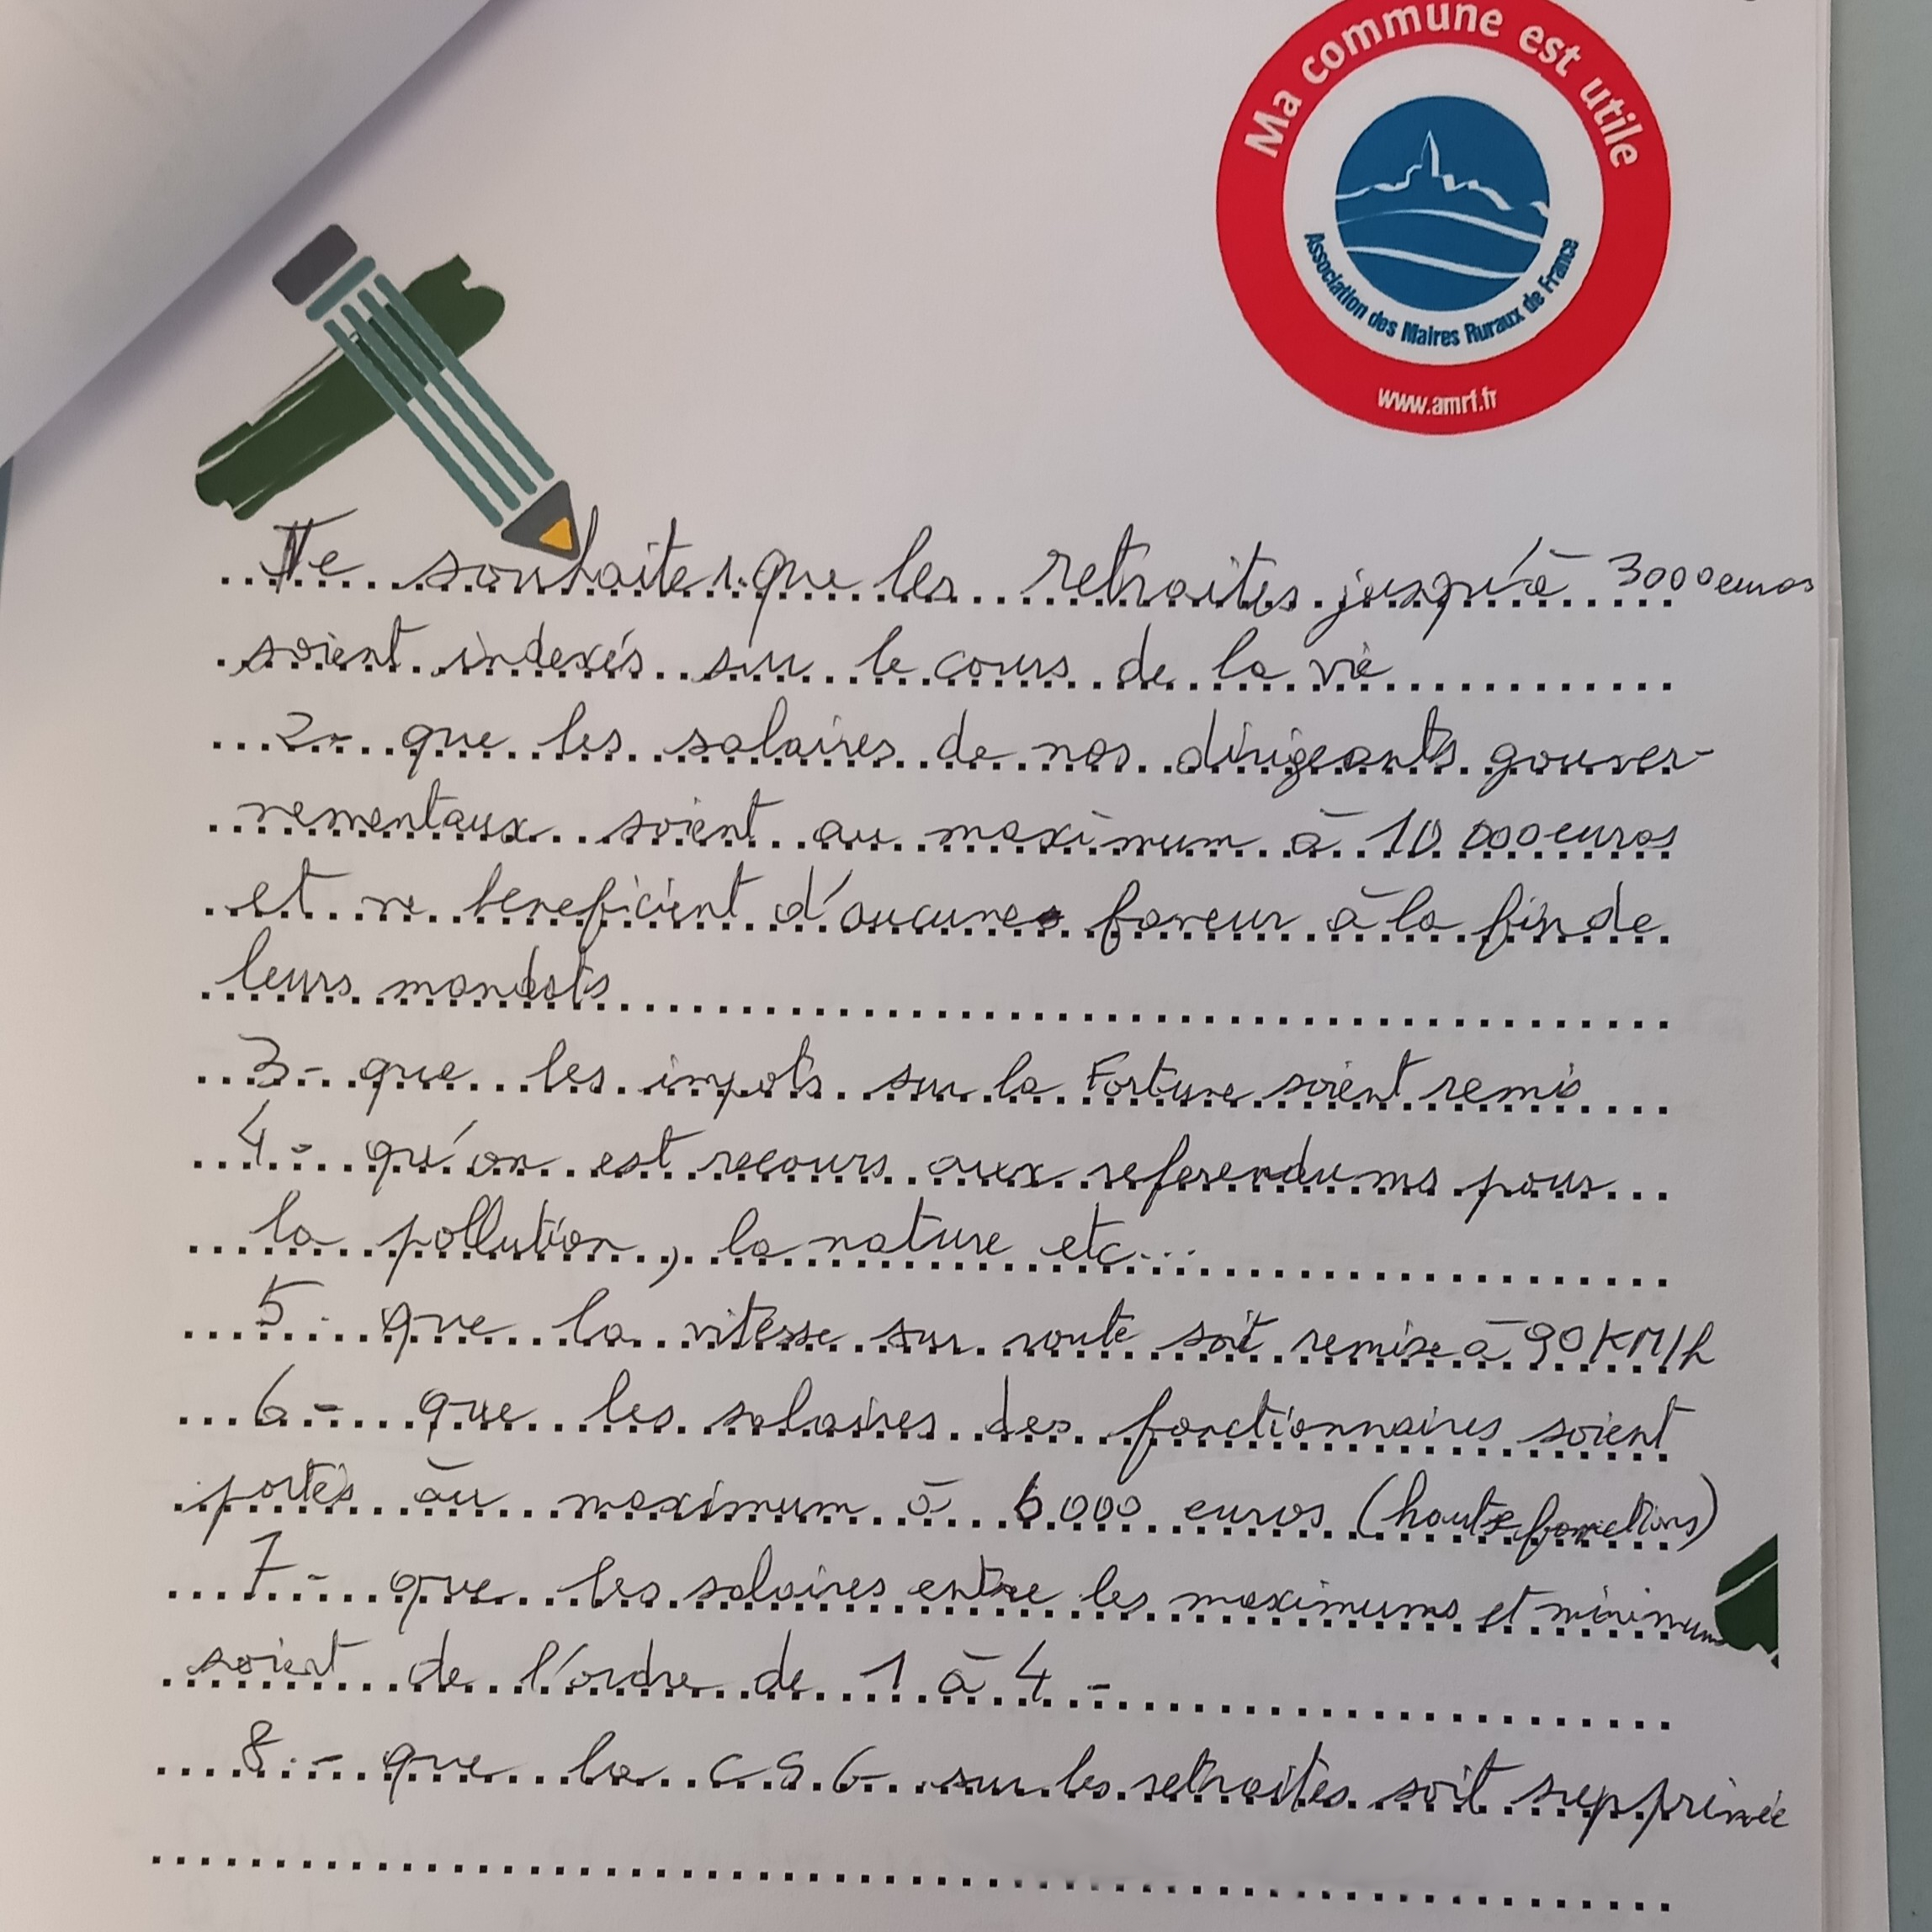 Ma commune est utile
Association des Maires Ruraux de France
www.amrf.fr
Je souhaite 1. que les retraites jusqu'à 3000 euros
soient indexés sur le cours de la vie
2- que les salaires de nos dirigeants gouver-
nementaux soient au maximum à 10 000 euros
et ne beneficient d'aucune faveur à la fin de
leurs mandats
3- que les impots sur la Fortune soient remis
4- qu'on est recours aux referendums pour
la pollution, la nature etc...
5- que la vitesse sur route soit remise à 90 KM/h
6- que les salaires des fonctionnaires soient
portés au maximum à 6000 euros (haute fonctions)
7- que les salaires entre les maximums et minimums
soient de l'ordre de 1 à 4 -
8.- que la C.S.G sur les retraites soit supprimée